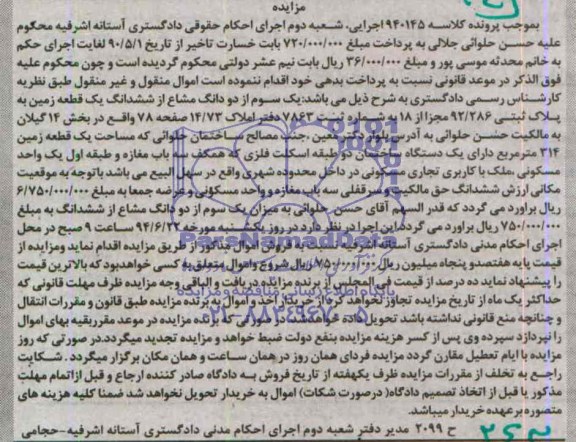 مزایده
بموجب پرونده کلاسه ۹۴۰۱۴۵ اجرایی، شعبه دوم اجرای احکام حقوقی دادگستری آستانه اشرفیه محکوم
علیه حسن حلوائی جلالی به پرداخت مبلغ ۷۲۰/۰۰۰/۰۰۰ بابت خسارت تاخیر از تاریخ ۹۰/۵/۱ لغایت اجرای حکم
به خانم محدثه موسی پور و مبلغ ۳۶/۰۰۰/۰۰۰ ریال بابت نیم عشر دولتی محکوم گردیده است و چون محکوم علیه
فوق الذکر در موعد قانونی نسبت به پرداخت بدهی خود اقدام ننموده است اموال منقول و غیر منقول طبق نظریه
کارشناس رسمی دادگستری به شرح ذیل می باشد: یک سوم از دو دانگ مشاع از ششدانگ یک قطعه زمین به
پلاک ثبتی ۹۲/۲۸۶ مجزا از ۱۸ به شماره ثبت ۷۸۶۳ دفتر املاک ۱۴/۷۳ صفحه ۷۸ واقع در بخش ۱۴ گیلان
به مالکیت حسن حلوائی به آدرس بلوار دکتر معین ،جنب مصالح ساختمان حلوائی که مساحت یک قطعه زمین
۳۱۴ مترمربع دارای یک دستگاه ساختمان دو طبقه اسکلت فلزی که همکف سه باب مغازه و طبقه اول یک واحد
مسکونی ،ملک با کاربری تجاری مسکونی در داخل محدوده شهری واقع در سهل البیع می باشد با توجه به موقعیت
مکانی ارزش ششدانگ حق مالکیت و سرقفلی سه باب مغازه و واحد مسکونی و عرصه جمعا به مبلغ ۶/۷۵۰/۰۰۰/۰۰۰
ریال برآورد می گردد که قدر السهم آقای حسن حلوائی به میزان یک سوم از دو دانگ مشاع از ششدانگ به مبلغ
۷۵۰/۰۰۰/۰۰۰ ریال برآورد می گردد. این اجرا در نظر دارد در روز یکشنبه مورخه ۹۴/۶/۲۲ ساعت ۹ صبح در محل
اجرای احکام مدنی دادگستری آستانه اشرفیه اموال مذکور از طریق مزایده اقدام نماید ومزایده از
قیمت پایه هفتصدو پنجاه میلیون ریال ریال شروع واموال متعلق به کسی خواهدبود که بالاترین قیمت
را پیشنهاد نماید ده درصد از قیمت فی المجلس از برنده مزایده دریافت و الباقی وجه مزایده ظرف مهلت قانونی که
حداکثر یک ماه از تاریخ مزایده تجاوز نخواهد کرد از خریدار اخذ و اموال به برنده مزایده طبق قانون و مقررات انتقال
و چنانچه منع قانونی نداشته باشد تحویل داده خواهدشد. در صورتی که برنده مزایده در موعد مقرربقیه بهای اموال
را نپردازد سپرده وی پس از کسر هزینه مزایده بنفع دولت ضبط خواهد و مزایده تجدید میگردد.در صورتی که روز
مزایده با ایام تعطیل مقارن گردد مزایده فردای همان روز در همان ساعت و همان مکان برگزار میگردد . شکایت
راجع به تخلف از مقررات مزایده ظرف یکهفته از تاریخ فروش به دادگاه صادر کننده ارجاع و قبل ازاتمام مهلت
مذکور یا قبل از اتخاذ تصمیم دادگاه( درصورت شکات) اموال به خریدار تحویل نخواهد شد ضمنا کلیه هزینه های
متصوره برعهده خریدار میباشد.
ح ۲۰۹۹ مدیر دفتر شعبه دوم اجرای احکام مدنی دادگستری آستانه اشرفیه-حجامی
ParsNamadData
۰۲۱-۸۸۳۴۹۶۷۰-۵